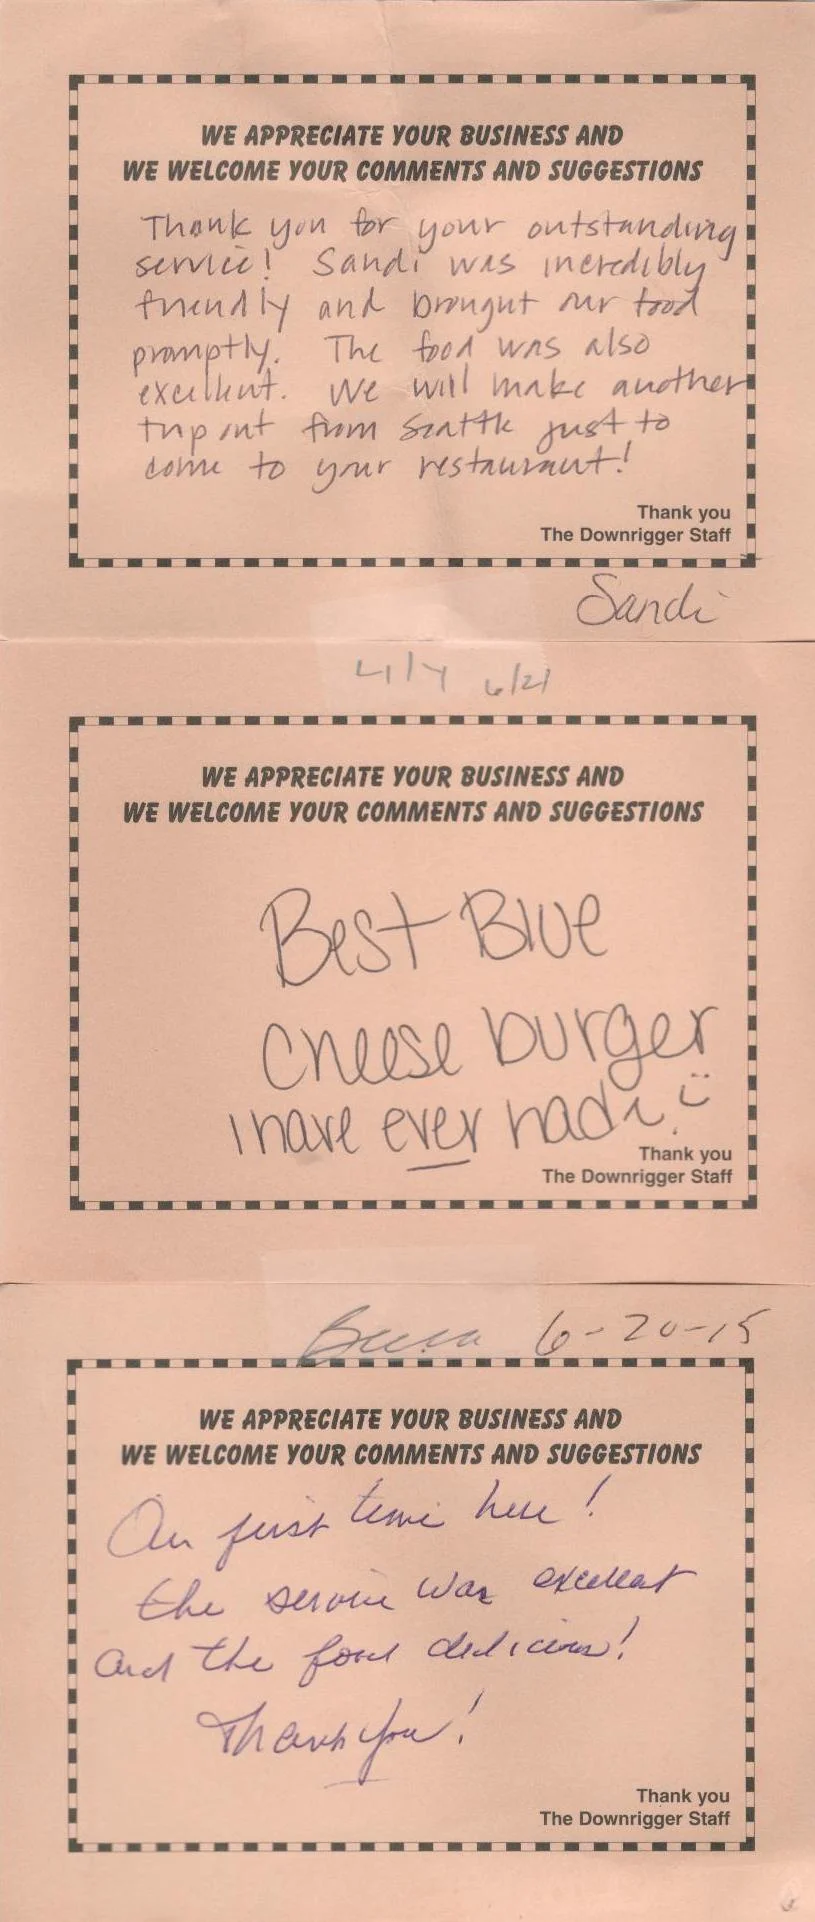 WE APPRECIATE YOUR BUSINESS AND
WE WELCOME YOUR COMMENTS AND SUGGESTIONS
Thank you for your outstanding
service! Sandi was incredibly
friendly and brought our food
promptly. The food was also
excellent. We will make another
trip out from Seattle just to
come to your restaurant!
Thank you
The Downrigger Staff
Sandi
6/21
WE APPRECIATE YOUR BUSINESS AND
WE WELCOME YOUR COMMENTS AND SUGGESTIONS
Best Blue
cheese burger
I have ever had! :)
Thank you
The Downrigger Staff
6-20-15
WE APPRECIATE YOUR BUSINESS AND
WE WELCOME YOUR COMMENTS AND SUGGESTIONS
Our first time here!
the service was excellent
and the food delicious!
Thank you!
Thank you
The Downrigger Staff